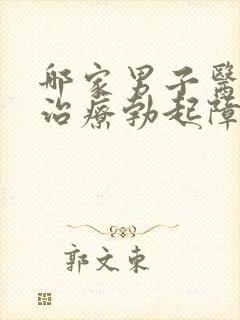 邮家男子醫
治療勃起障
郭文東